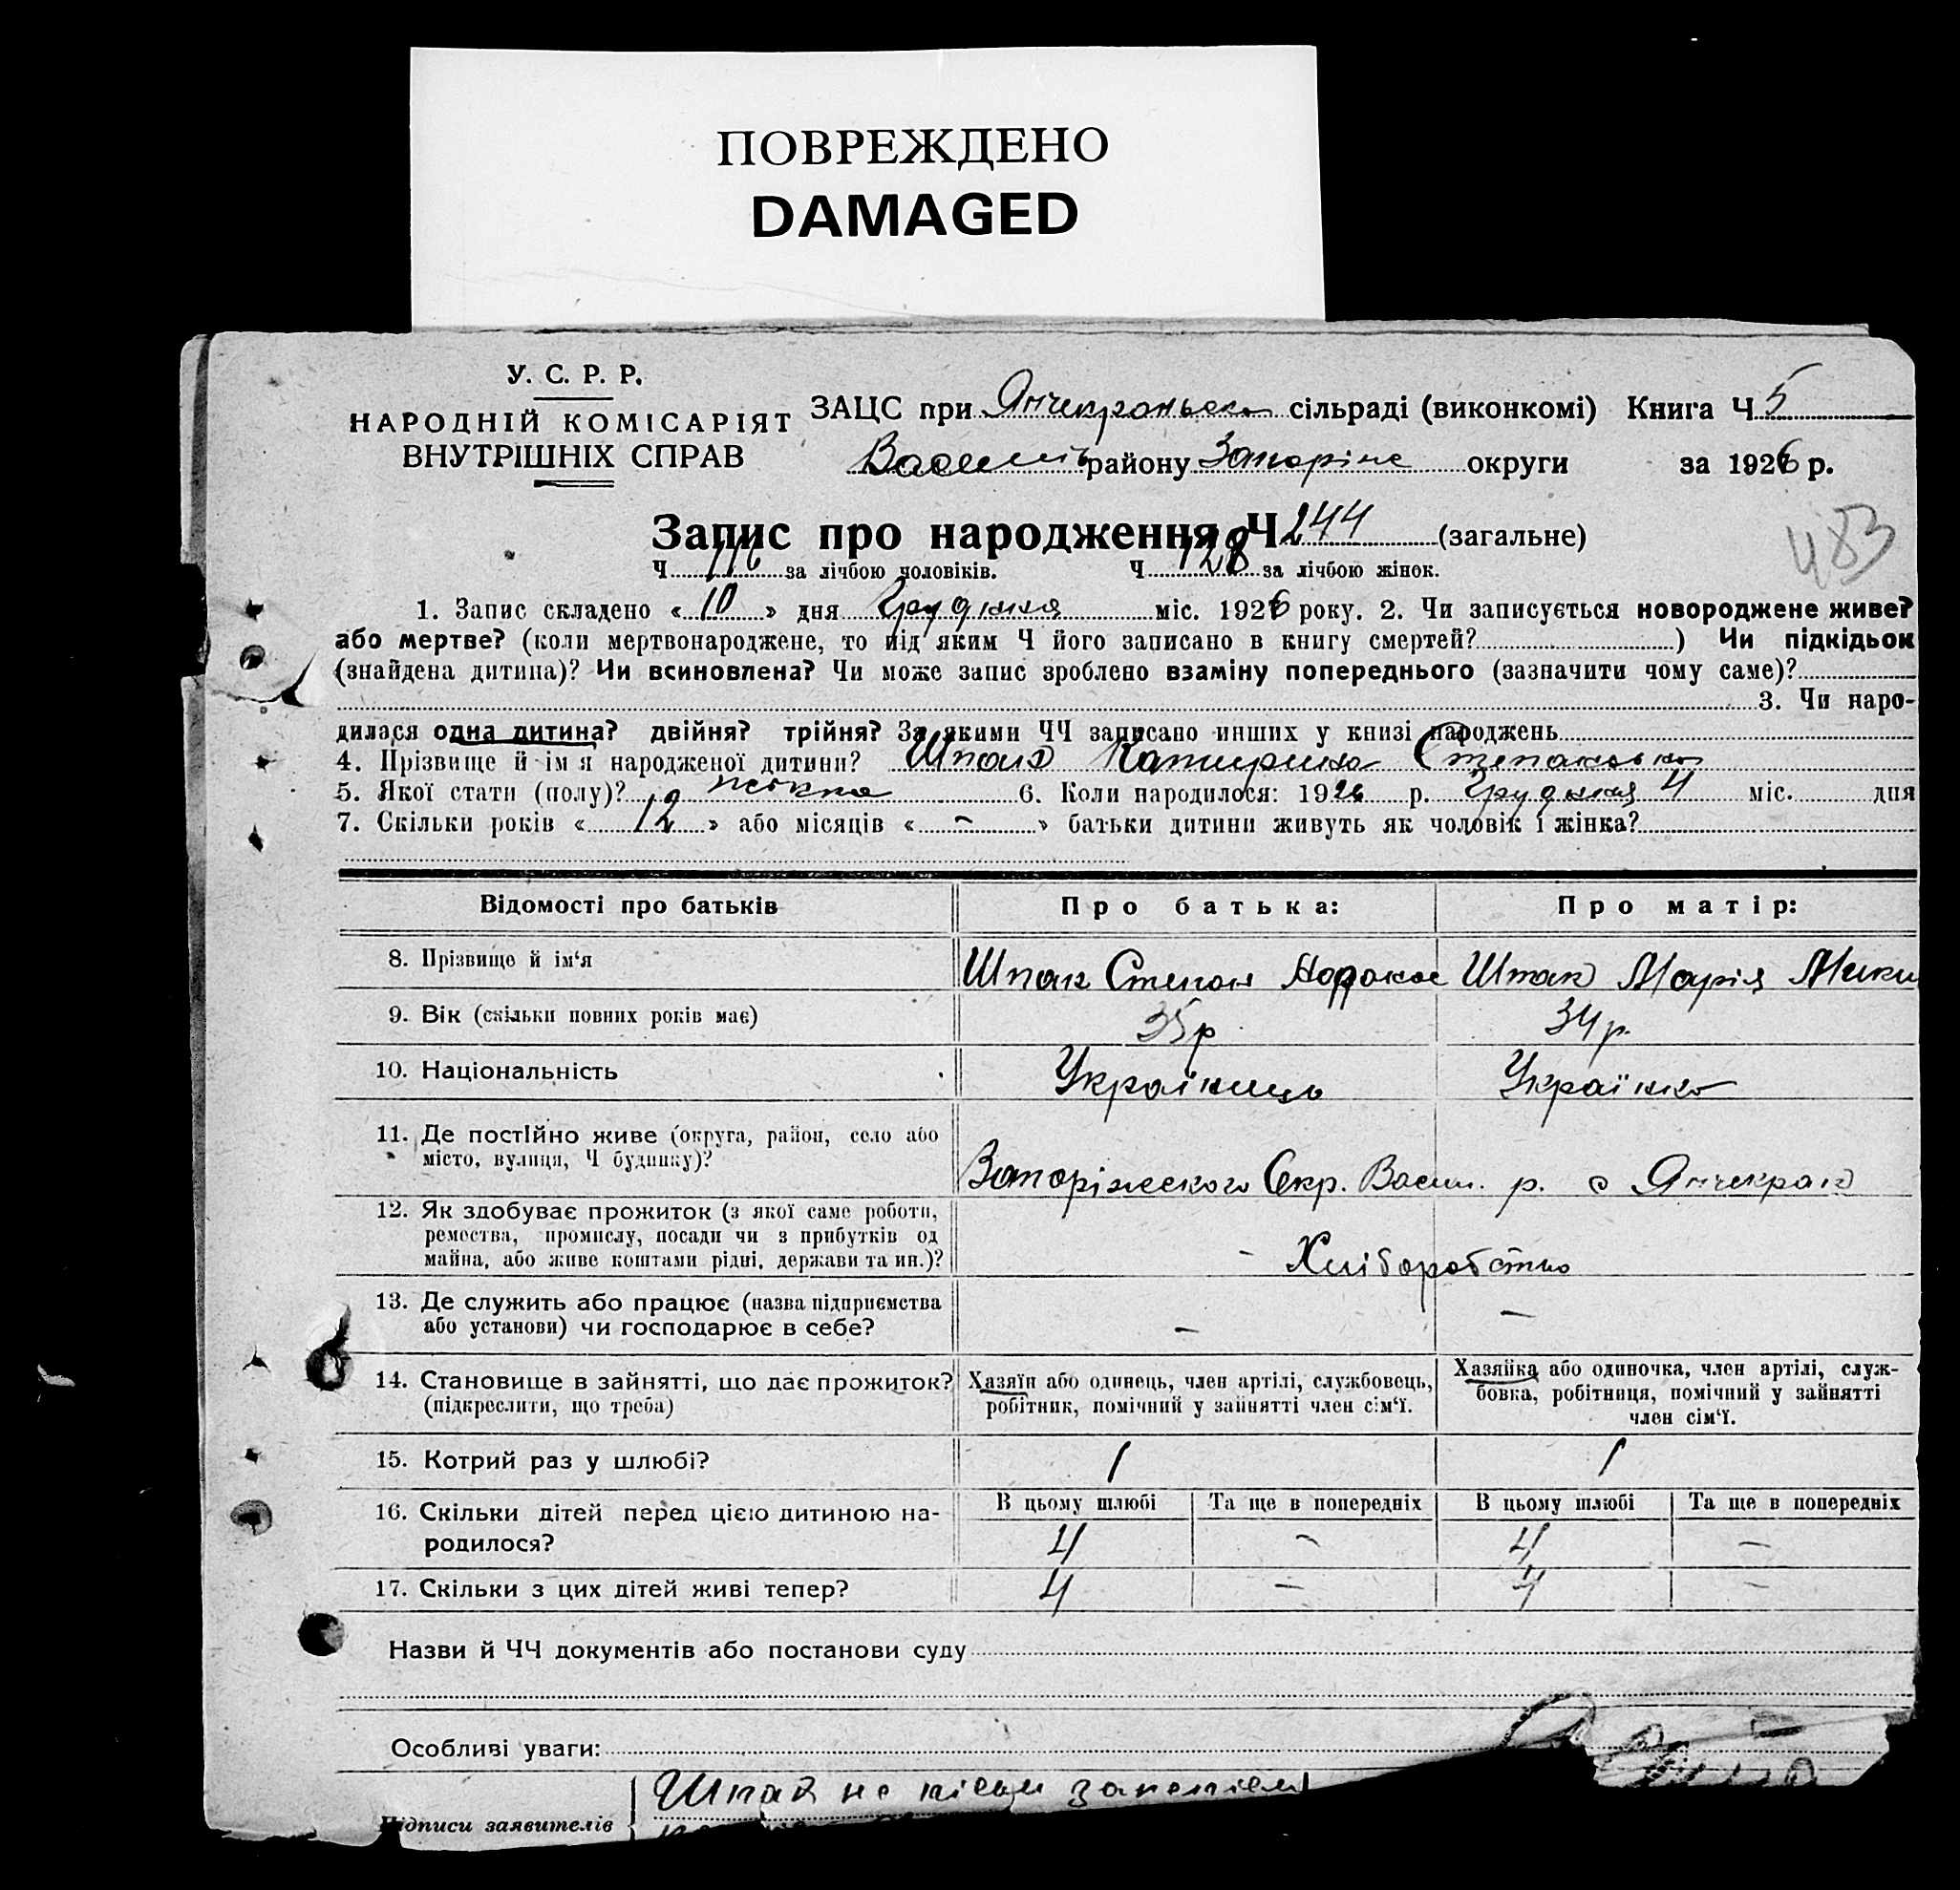 ПОВРЕЖДЕНО
DAMAGED
У. С. Р. Р.
НАРОДНІЙ КОМІСАРІЯТ
ВНУТРІШНІХ СПРАВ
ЗАЦС при Янчекраньск сільраді (виконкомі) Книга Ч 5
Васил району Запоріж округи за 1926 р.
Запис про народження Ч 244 (загальне)
483
Ч 116 за лічбою чоловіків. Ч 128 за лічбою жінок.
1. Запис складено « 10 » дня Грудня міс. 1926 року. 2. Чи записується новороджене живе?
або мертве? (коли мертвонароджене, то під яким Ч його записано в книгу смертей? ) Чи підкідьок
(знайдена дитина)? Чи всиновлена? Чи може запис зроблено взаміну попереднього (зазначити чому саме)?
3. Чи наро-
дилася одна дитина? двійня? трійня? За якими ЧЧ записано инших у книзі народжень
4. Прізвище й ім'я народженої дитини? Шпак Катирина Степановна
5. Якої стати (полу)? жіноча 6. Коли народилося: 1926 р. Грудня 4 міс. дня
7. Скільки років « 12 » або місяців « – » батьки дитини живуть як чоловік і жінка?
Відомості про батьків Про батька: Про матір:
8. Прізвище й ім'я Шпак Степан Шпак Марія Мики
9. Вік (скільки повних років має) 35 р 34 р.
10. Національність Українець Українка
11. Де постійно живе (округа, район, село або
місто, вулиця, Ч будинку)? Запоріжського Окр. Васил. р. с Янчекрак
12. Як здобуває прожиток (з якої саме роботи,
ремества, промислу, посади чи з прибутків од
майна, або живе коштами рідні, держави та ин.)? - Хліборобство
13. Де служить або працює (назва підприємства
або установи) чи господарює в себе? – –
14. Становище в зайнятті, що дає прожиток?
(підкреслити, що треба)
Хазяїн або одинець, член артілі, службовець,
робітник, помічний у зайнятті член сім'ї.
Хазяйка або одиночка, член артілі, служ-
бовка, робітниця, помічний у зайнятті
член сім'ї.
15. Котрий раз у шлюбі? 1 1
В цьому шлюбі Та ще в попередніх В цьому шлюбі Та ще в попередніх
16. Скільки дітей перед цією дитиною на-
родилося? 4 – 4 –
17. Скільки з цих дітей живі тепер? 4 – 4 –
Назви й ЧЧ документів або постанови суду
Особливі уваги:
Підписи заявителів Шпак не